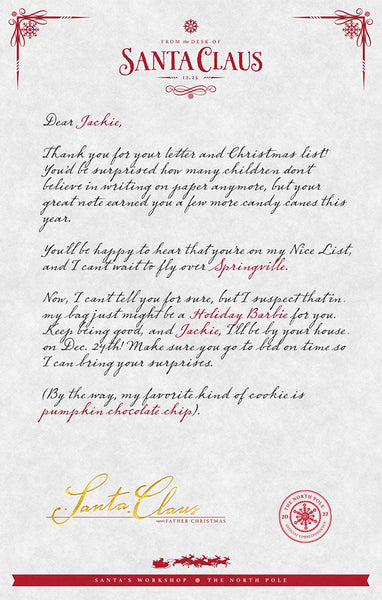 FROM the DESK OF
SANTA CLAUS
12.25
Dear Jackie,
Thank you for your letter and Christmas list!
You'd be surprised how many children don't
believe in writing on paper anymore, but your
great note earned you a few more candy canes this
year.
You'll be happy to hear that you're on my Nice List,
and I can't wait to fly over Springville.
Now, I can't tell you for sure, but I suspect that in
my bag just might be a Holiday Barbie for you.
Keep being good, and Jackie, I'll be by your house
on Dec. 24th! Make sure you go to bed on time so
I can bring your surprises.
(By the way, my favorite kind of cookie is
pumpkin chocolate chip).
Santa Claus
FATHER CHRISTMAS
THE NORTH POLE
20 22
OFFICIAL CORRESPONDENCE
SANTA'S WORKSHOP THE NORTH POLE